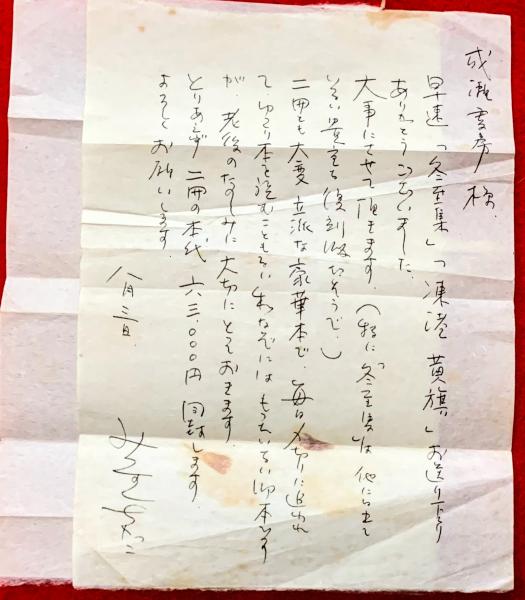 成瀬 様
早速「冬至集」「凍港 黄旗」お送り下さり
ありがとうございました
大事にさせて頂きます（特に「冬至集」は 他に出て
いない 貴重な復刻版だそうで、）
二冊とも大変立派な豪華本で、毎日〆切りに追われ
てゆっくり本を読むこともない なぞには もったいない御本です
が、老後のたのしみに大切にとっておきます。
とりあえず 二冊の本代 六三、〇〇〇円 同封します
よろしくお願いします。
八月三日、